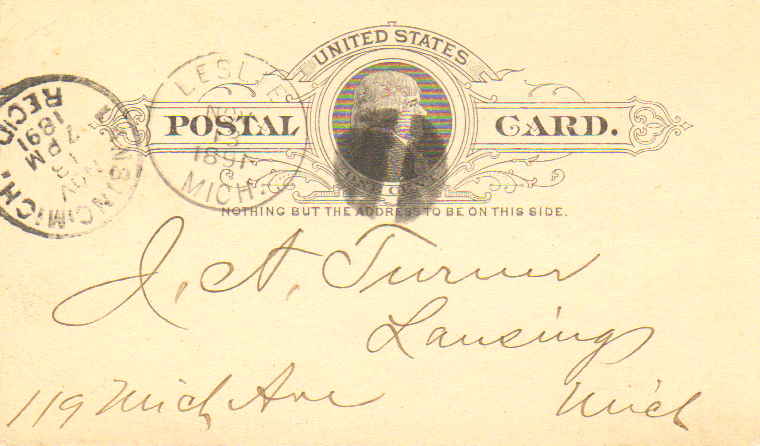 UNITED STATES
POSTAL CARD.
NOTHING BUT THE ADDRESS TO BE ON THIS SIDE.
LESLIE
NOV
13
1891
MICH.
LANSING, MICH.
NOV
13
PM
1891
REC'D.
J. A. Turner
Lansing
119 Mich Ave Mich